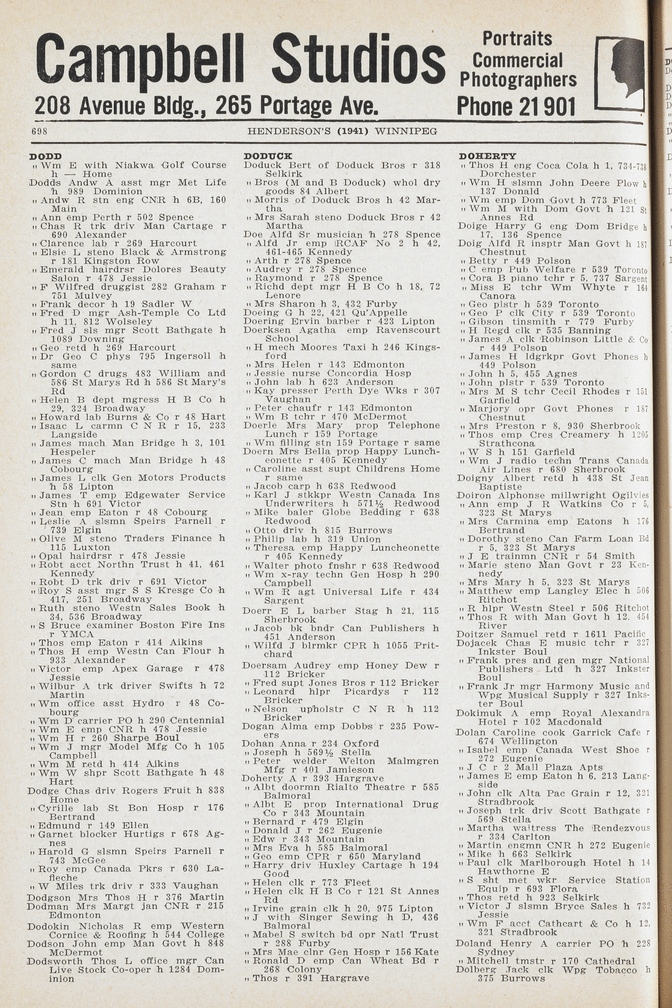 Campbell Studios
Portraits
Commercial
Photographers
208 Avenue Bldg., 265 Portage Ave.
Phone 21 901
698
HENDERSON'S (1941) WINNIPEG
DODD
" Wm E with Niakwa Golf Course
h — Home
Dodds Andw A asst mgr Met Life
h 989 Dominion
" Andw R stn eng CNR h 6B, 160
Main
" Ann emp Perth r 502 Spence
" Chas R trk driv Man Cartage r
690 Alexander
" Clarence lab r 269 Harcourt
" Elsie L steno Black & Armstrong
r 181 Kingston Row
" Emerald hairdrsr Dolores Beauty
Salon r 478 Jessie
" F Wilfred druggist 282 Graham r
751 Mulvey
" Frank decor h 19 Sadler W
" Fred D mgr Ash-Temple Co Ltd
h 11, 812 Wolseley
" Fred J sls mgr Scott Bathgate h
1089 Downing
" Geo retd h 269 Harcourt
" Dr Geo C phys 795 Ingersoll h
same
" Gordon C drugs 483 William and
586 St Marys Rd h 586 St Mary's
Rd
" Helen B dept mgress H B Co h
29, 324 Broadway
" Howard lab Burns & Co r 48 Hart
" Isaac L carmn C N R r 15, 233
Langside
" James mach Man Bridge h 3, 101
Hespeler
" James C mach Man Bridge h 48
Cobourg
" James L clk Gen Motors Products
h 58 Lipton
" James T emp Edgewater Service
Stn h 691 Victor
" Jean emp Eaton r 48 Cobourg
" Leslie A slsmn Speirs Parnell r
739 Elgin
" Olive M steno Traders Finance h
115 Luxton
" Opal hairdrsr r 478 Jessie
" Robt acct Northn Trust h 41, 461
Kennedy
" Robt D trk driv r 691 Victor
" Roy S asst mgr S S Kresge Co h
417, 251 Broadway
" Ruth steno Westn Sales Book h
34, 536 Broadway
" S Bruce examiner Boston Fire Ins
r YMCA
" Thos emp Eaton r 414 Aikins
" Thos H emp Westn Can Flour h
933 Alexander
" Victor emp Apex Garage r 478
Jessie
" Wilbur A trk driver Swifts h 72
Martin
" Wm office asst Hydro r 48 Co-
bourg
" Wm D carrier PO h 290 Centennial
" Wm E emp CNR h 478 Jessie
" Wm H r 260 Sharpe Boul
" Wm J mgr Model Mfg Co h 105
Campbell
" Wm M retd h 414 Aikins
" Wm W shpr Scott Bathgate h 48
Hart
Dodge Chas driv Rogers Fruit h 838
Home
" Cyrille lab St Bon Hosp r 176
Bertrand
" Edmund r 149 Ellen
" Garnet blocker Hurtigs r 678 Ag-
nes
" Harold G slsmn Speirs Parnell r
743 McGee
" Roy emp Canada Pkrs r 630 La-
fleche
" W Miles trk driv r 333 Vaughan
Dodgson Mrs Thos H r 376 Martin
Dodman Mrs Margt jan CNR r 215
Edmonton
Dodokin Nicholas R emp Western
Cornice & Roofing h 544 College
Dodson John emp Man Govt h 848
McDermot
Dodsworth Thos L office mgr Can
Live Stock Co-oper h 1284 Dom-
inion
DODUCK
Doduck Bert of Doduck Bros r 318
Selkirk
" Bros (M and B Doduck) whol dry
goods 84 Albert
" Morris of Doduck Bros h 42 Mar-
tha
" Mrs Sarah steno Doduck Bros r 42
Martha
Doe Alfd Sr musician h 278 Spence
" Alfd Jr emp RCAF No 2 h 42,
461-465 Kennedy
" Arth r 278 Spence
" Audrey r 278 Spence
" Raymond r 278 Spence
" Richd dept mgr H B Co h 18, 72
Lenore
" Mrs Sharon h 3, 432 Furby
Doeing G h 22, 421 Qu'Appelle
Doering Ervin barber r 423 Lipton
Doerksen Agatha emp Ravenscourt
School
" H mech Moores Taxi h 246 Kings-
ford
" Mrs Helen r 143 Edmonton
" Jessie nurse Concordia Hosp
" John lab h 623 Anderson
" Kay presser Perth Dye Wks r 307
Vaughan
" Peter chaufr r 143 Edmonton
" Wm B tchr r 470 McDermot
Doerle Mrs Mary prop Telephone
Lunch r 159 Portage
" Wm filling stn 159 Portage r same
Doern Mrs Bella prop Happy Lunch-
eonette r 405 Kennedy
" Caroline asst supt Childrens Home
r same
" Jacob carp h 638 Redwood
" Karl J stkkpr Westn Canada Ins
Underwriters h 571½ Redwood
" Mike baler Globe Bedding r 638
Redwood
" Otto driv h 815 Burrows
" Philip lab h 319 Union
" Theresa emp Happy Luncheonette
r 405 Kennedy
" Walter photo fnshr r 638 Redwood
" Wm x-ray techn Gen Hosp h 290
Campbell
" Wm R agt Universal Life r 434
Sargent
Doerr E L barber Stag h 21, 115
Sherbrook
" Jacob bk bndr Can Publishers h
451 Anderson
" Wilfd J blrmkr CPR h 1055 Prit-
chard
Doersam Audrey emp Honey Dew r
112 Bricker
" Fred supt Jones Bros r 112 Bricker
" Leonard hlpr Picardys r 112
Bricker
" Nelson upholstr C N R h 112
Bricker
Dogan Alma emp Dobbs r 235 Pow-
ers
Dohan Anna r 234 Oxford
" Joseph h 569½ Stella
" Peter welder Welton Malmgren
Mfg r 401 Jamieson
Doherty A r 393 Hargrave
" Albt doormn Rialto Theatre r 585
Balmoral
" Albt E prop International Drug
Co r 343 Mountain
" Bernard r 479 Elgin
" Donald J r 262 Eugenie
" Edw r 343 Mountain
" Mrs Eva h 585 Balmoral
" Geo emp CPR r 650 Maryland
" Harry driv Huxley Cartage r 194
Good
" Helen clk r 773 Fleet
" Helen clk H B Co r 121 St Annes
Rd
" Irvine grain clk h 20, 975 Lipton
" J with Singer Sewing h D, 436
Balmoral
" Mabel S switch bd opr Natl Trust
r 288 Furby
" Mrs Mae clnr Gen Hosp r 156 Kate
" Ronald D emp Can Wheat Bd r
268 Colony
" Thos r 391 Hargrave
DOHERTY
" Thos H eng Coca Cola h 1, 734-738
Dorchester
" Wm H slsmn John Deere Plow h
137 Donald
" Wm emp Dom Govt h 773 Fleet
" Wm M with Dom Govt h 121 St
Annes Rd
Doige Harry G eng Dom Bridge h
17, 136 Spence
Doig Alfd R insptr Man Govt h 187
Chestnut
" Betty r 449 Polson
" C emp Pub Welfare r 539 Toronto
" Cora B piano tchr r 5, 737 Sargent
" Miss E tchr Wm Whyte r 164
Canora
" Geo plstr h 539 Toronto
" Geo P clk City r 539 Toronto
" Gibson tinsmith r 779 Furby
" H Regd clk r 535 Banning
" James A clk Robinson Little & Co
r 449 Polson
" James H ldgrkpr Govt Phones h
449 Polson
" John h 5, 455 Agnes
" John plstr r 539 Toronto
" Mrs M S tchr Cecil Rhodes r 151
Garfield
" Marjory opr Govt Phones r 187
Chestnut
" Mrs Preston r 8, 930 Sherbrook
" Thos emp Cres Creamery h 1205
Strathcona
" W S h 151 Garfield
" Wm J radio techn Trans Canada
Air Lines r 680 Sherbrook
Doigny Albert retd h 438 St Jean
Baptiste
Doiron Alphonse millwright Ogilvies
" Ann emp J R Watkins Co r 5,
323 St Marys
" Mrs Carmina emp Eatons h 176
Bertrand
" Dorothy steno Can Farm Loan Bd
r 5, 323 St Marys
" J E trainmn CNR r 54 Smith
" Marie steno Man Govt r 23 Ken-
nedy
" Mrs Mary h 5, 323 St Marys
" Matthew emp Langley Elec h 506
Ritchot
" R hlpr Westn Steel r 506 Ritchot
" Thos R with Man Govt h 12, 454
River
Doitzer Samuel retd r 1611 Pacific
Dojacek Chas E music tchr r 327
Inkster Boul
" Frank pres and gen mgr National
Publishers Ltd h 327 Inkster
Boul
" Frank Jr mgr Harmony Music and
Wpg Musical Supply r 327 Inks-
ter Boul
Dokimuk A emp Royal Alexandra
Hotel r 102 Macdonald
Dolan Caroline cook Garrick Cafe r
674 Wellington
" Isabel emp Canada West Shoe r
272 Eugenie
" J C r 2 Mall Plaza Apts
" James E emp Eaton h 6, 213 Lang-
side
" John clk Alta Pac Grain r 12, 321
Stradbrook
" Joseph trk driv Scott Bathgate r
569 Stella
" Martha waitress The Rendezvous
r 334 Carlton
" Martin engmn CNR h 272 Eugenie
" Mike h 663 Selkirk
" Paul clk Marlborough Hotel h 14
Hawthorne E
" S sht met wkr Service Station
Equip r 693 Flora
" Thos retd h 923 Selkirk
" Victor J slsmn Bryce Sales h 732
Jessie
" Wm F acct Cathcart & Co h 12,
321 Stradbrook
Doland Henry A carrier PO h 228
Sydney
" Mitchell tmstr r 170 Cathedral
Dolberg Jack clk Wpg Tobacco h
375 Burrows